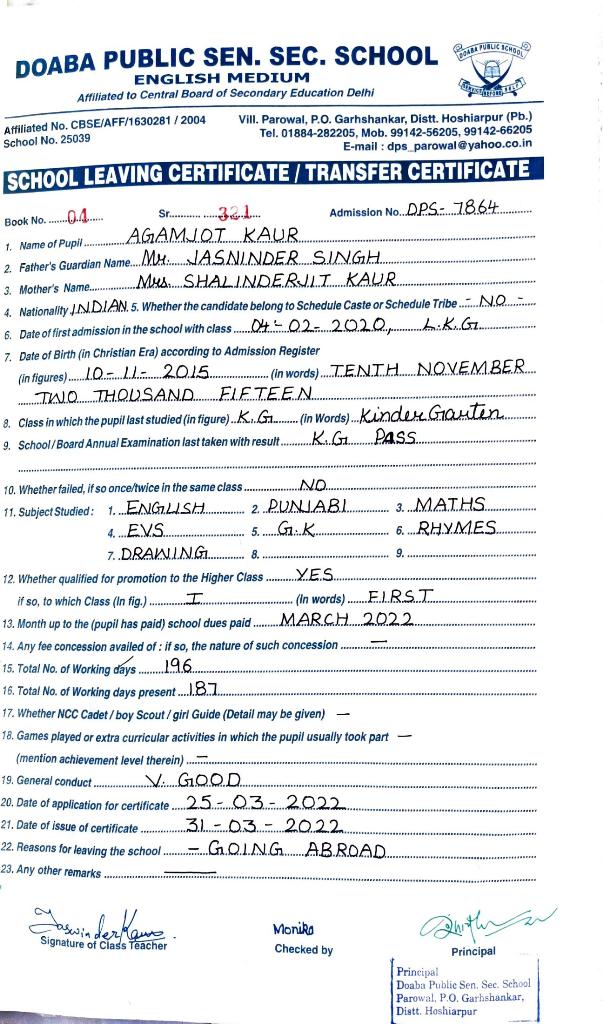 DOABA PUBLIC SEN. SEC. SCHOOL
DOABA PUBLIC SCHOOL
ENGLISH MEDIUM
Affiliated to Central Board of Secondary Education Delhi
Affiliated No. CBSE/AFF/1630281 / 2004
School No. 25039
Vill. Parowal, P.O. Garhshankar, Distt. Hoshiarpur (Pb.)
Tel. 01884-282205, Mob. 99142-56205, 99142-66205
E-mail : dps_parowal@yahoo.co.in
SCHOOL LEAVING CERTIFICATE / TRANSFER CERTIFICATE
Book No. 04 Sr. 321 Admission No. DPS- 7864
1. Name of Pupil AGAMJOT KAUR
2. Father's Guardian Name Mr. JASNINDER SINGH
3. Mother's Name Mrs. SHALINDERJIT KAUR
4. Nationality INDIAN 5. Whether the candidate belong to Schedule Caste or Schedule Tribe - NO -
6. Date of first admission in the school with class 04-02-2020, L.K.G
7. Date of Birth (in Christian Era) according to Admission Register
(in figures) 10-11-2015 (in words) TENTH NOVEMBER
TWO THOUSAND FIFTEEN
8. Class in which the pupil last studied (in figure) K.G (in Words) Kinder Garten
9. School / Board Annual Examination last taken with result K.G PASS
10. Whether failed, if so once/twice in the same class NO
11. Subject Studied : 1. ENGLISH 2. PUNJABI 3. MATHS
4. EVS 5. G.K 6. RHYMES
7. DRAWING 8. 9.
12. Whether qualified for promotion to the Higher Class YES
if so, to which Class (In fig.) I (In words) FIRST
13. Month up to the (pupil has paid) school dues paid MARCH 2022
14. Any fee concession availed of : if so, the nature of such concession —
15. Total No. of Working days 196
16. Total No. of Working days present 187
17. Whether NCC Cadet / boy Scout / girl Guide (Detail may be given) —
18. Games played or extra curricular activities in which the pupil usually took part —
(mention achievement level therein) —
19. General conduct V. GOOD
20. Date of application for certificate 25-03-2022
21. Date of issue of certificate 31-03-2022
22. Reasons for leaving the school - GOING ABROAD
23. Any other remarks —
Jaswinder Kaur
Signature of Class Teacher
Monika
Checked by
Principal
Principal
Doaba Public Sen. Sec. School
Parowal, P.O. Garhshankar,
Distt. Hoshiarpur